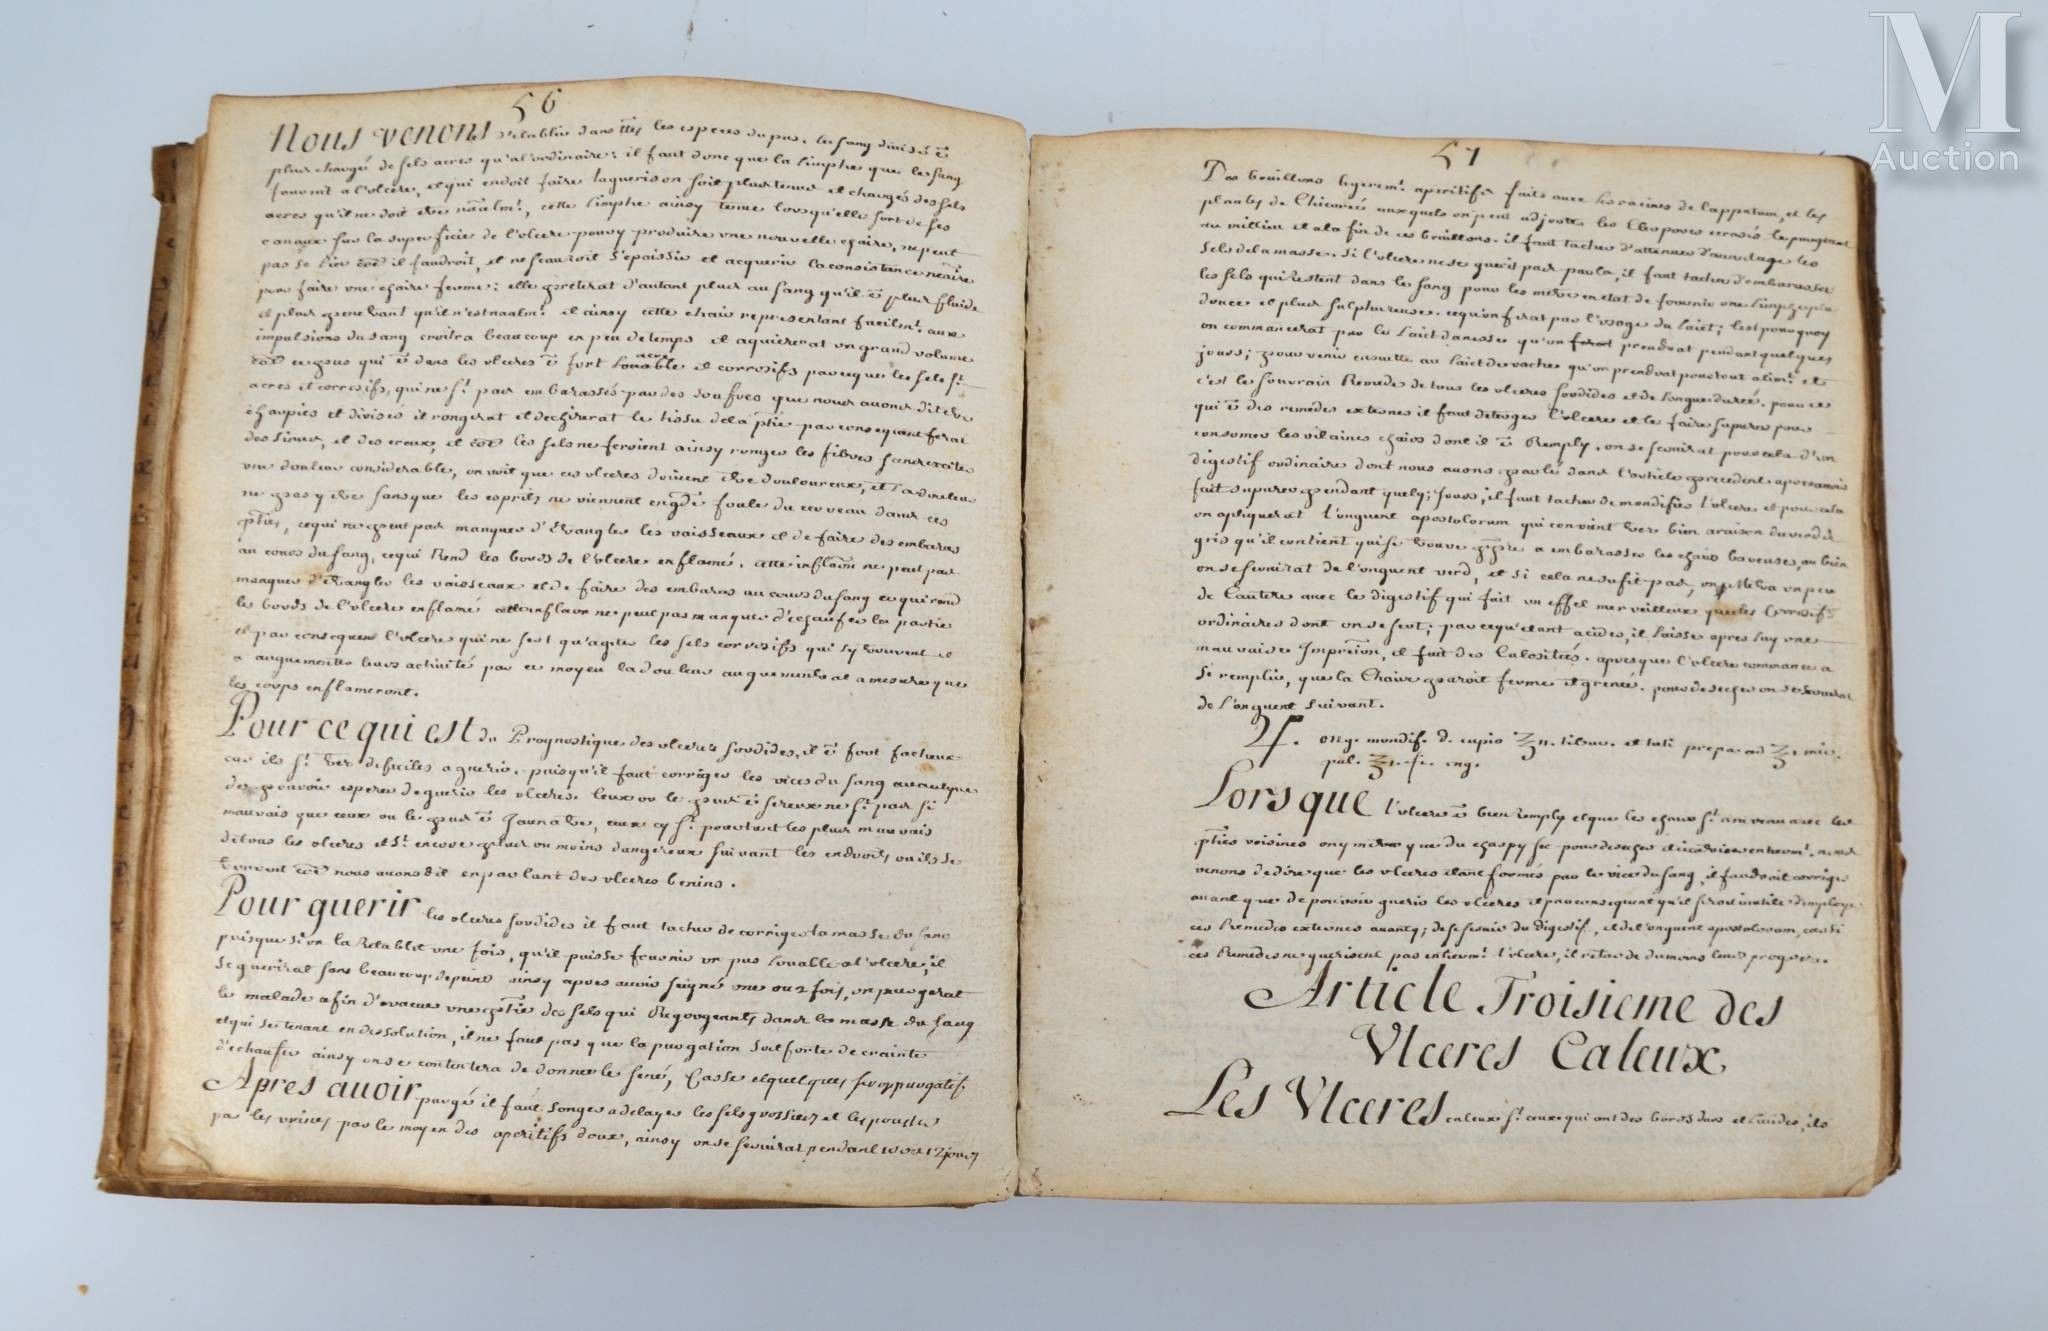 56
Nous venons d'etablir dans ttes les especes du pus. le sang divisé ē
plus chargé de sels acres qu'al'ordinaire; il faut donc que la limphe que le sang
fournit a l'ulcere, et qui en doit faire la guerison soit plus tenue et chargés des sels
acres qu'il ne doit etre nãalmt., cette limphe ainsy tenue lorsqu'elle sort de ses
canaux sur la superficie de l'ulcere pour y produire une nouvelle chaire, ne peut
pas se lier cōe il faudroit, et ne scauroit s'epaissir et acquerir la consistance nēaire
pour faire une chaire ferme; elle preterat d'autant plus au sang qu'il ē plus fluide
et plus que n'est naalmt. et ainsy cette chair representant facilmt. aux
impulsions du sang croitra beaucoup en peu de temps et aquiererat un grand volume
cōe ce pus qui ē dans les ulceres ē fort Louable acre et corrosifs parceque les sels st.
acres et corrosifs, qui ne st. pas embarassés par des soufres que nous avons dit etre
charpies et divisés il rongerat et dechirerat le tissu de la ptie par consequant ferat
des sinus, et des creux, et cōe les sels ne feroient ainsy ronger les fibres sans exciter
une douleur considerable, on voit que ces ulceres doivent etre douloureux, et la douleur
ne peas y etre sans que les esprits ne viennent en gde foule du cerveau dans ces
pties, ce qui ne peut pas manquer d'etrangler les vaisseaux et de faire des embaras
au cours du sang, ce qui rend les bords de l'ulcere enflamé. cette inflaon ne peut pas
manquer d'etrangler les vaisseaux et de faire des embaras au cours du sang ce qui rend
les bords de l'ulcere enflamé cette inflaon ne peut pas manquer d'echaufer la partie
et par consequent l'ulcere qui ne fert qu'agiter les sels corrosifs qui s'y trouvent et
a augementer leurs activité par ce moyen la douleur augementerat a mesure que
les corps enflameront.
Pour ce qui est du Prognostique des ulceres sordides, il ē fort facheux
car ils st. tres dificiles a guerir, puisqu'il faut corriger les vices du sang avant que
de pouvoir esperer de guerir les ulceres. Ceux ou le pus ē sereux ne st. pas si
mauvais que ceux ou le pus ē jaunatre, ceux cy st. pourtant les plus mauvais
de tous les ulceres et st. encore plus ou moins dangereux suivant les endroits ou ils se
trouvent cōe nous avons dit en parlant des ulceres benins.
Pour guerir les ulceres sordides il faut tacher de corriger la masse du sang
puisque si on la retablit une fois, qu'il puisse fournir un pus Louable a l'ulcere, il
se guerirat sans beaucoup de peine ainsy apres avoir seigné une ou 2 fois, on purgerat
le malade afin d'evacuer une ptie des sels qui regorgeants dans la masse du sang
et qui se tenant en dissolution, il ne faut pas que la purgation soit forte de crainte
d'echaufer ainsy on se contentera de donner le sené, Casse et quelques sirop purgatif.
Apres avoir purgé il faut songer a delayer les sels grossiers et les pousser
par les urines par le moyen des aperitifs doux, ainsy on se servirat pendant 10 ou 12 jours
57
Des bouillons legeremt. aperitifs faits avec les racines de lappatum, et les
plantes de Chicorée auxquels on peut adjouter les Cloportes ecrasés le purgeant
au millieu et a la fin de ces bouillons. il faut tacher d'attenuer d'avantage les
sels de la masse. Si l'ulcere ne se guerit pas par la, il faut tacher d'embarasser
les sels qui restent dans le sang pour les mettre en etat de fournir une limphe plus
douce et plus sulphureuse. ce qu'on ferat par l'usage du laict; c'est pourquoy
on commancerat par le Laict danesse qu'on prendrat pendant quelques
jours; pour venir ensuitte au laict de vache qu'on prendrat pour tout alimt. et
c'est le souvrain Remede de tous les ulceres sordides et de longue durée. pour ce
qui ē des remedes externes il faut deterger l'ulcere et le faire supurer pour
consomer les vilaines chairs dont il ē Remply. on se servirat pour cela d'un
digestif ordinaire dont nous avons parlé dans l'article precedent apres avoir
fait supurer pendant quelq; jours, il faut tacher de mondifier l'ulcere et pour cela
on apliquerat l'onguent apostolorum qui convient tres bien araison du verd de
gris qu'il contient qui se trouve propre a embarasser les chairs baveuses, ou bien
on se servirat de l'onguent verd, et si cela ne sufit pas, on melera un peu
de Cautere avec le digestif qui fait un effet merveilleux que les Corrosifs
ordinaires dont on se sert; parcequ'etant acides, il laisse apres luy une
mauvaise Impreion, et fait des Calosités. apres que l'ulcere commance a
se remplir, que la Chaire paroit ferme et grenée. pour desecher on se servirat
de l'onguent suivant.
♃. ong. mondif. d. apio ℥ii. litar. et tuti prepa. ad ℥i mir.
pul. ℥i. f. ung.
Lorsque l'ulcere ē bien remply et que les chairs st. a niveau avec les
pties voisines on y mettra que du charpy sec pour desecher et cicatriser entiermt. nous
venons de dire que les ulceres etant formés par le vice du sang, il faudroit corriger
avant que de pouvoir guerir les ulceres et par consequent qu'il seroit inutile d'employer
ces Remedes externes avant q; de se servir du digestif, et de l'onguent apostolorum, car si
ces Remedes ne guerisent pas entiermt. l'ulcere, il retarde du moins leurs progres.
Article Troisieme des
Ulceres Caleux
Les Ulceres caleux st. ceux qui ont des bords durs et livides, ils
M
Auction